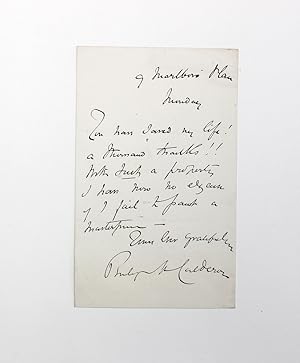 9 Marlboro' Place
Monday
You have saved my life!
a thousand thanks!!
With such a property
I have now no excuse
if I fail to paint a
masterpiece —
Yours ever gratefully
Philip H Calderon